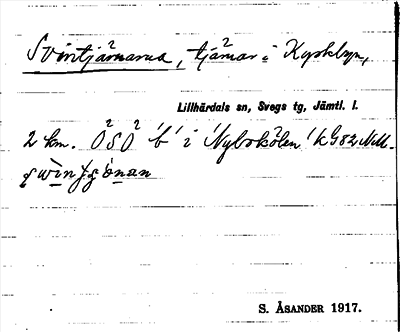 Svintjärnarna, tjärnar i Kyrkbyn,
Lillhärdals sn, Svegs tg, Jämtl. l.
2 km. OSO 'b' i 'Nybokölen' k G82 NM.
S. ÅSANDER 1917.